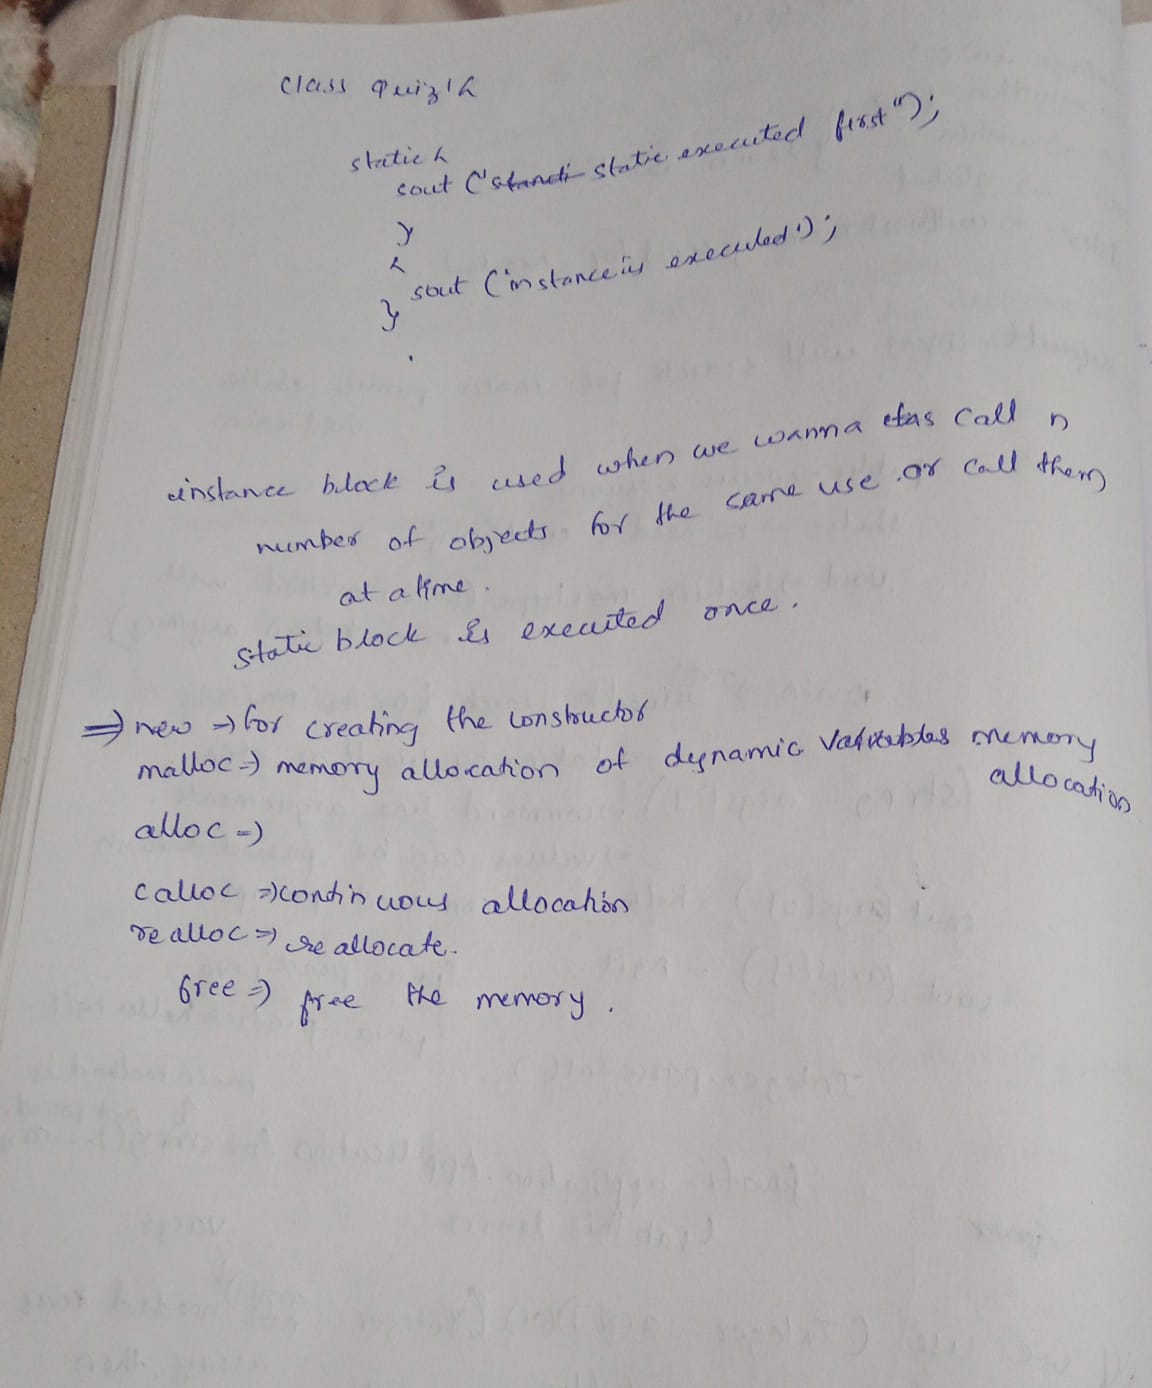 class Quiz1{
static {
sout ("standi static executed first");
}
{
sout ("instance is executed");
}
instance block is used when we wanna clas call n
number of objects for the same use or call them
at a time.
static block is executed once.
⇒ new → for creating the constructor
malloc ⇒ memory allocation of dynamic variables memory
allocation
alloc ⇒
calloc ⇒ continuous allocation
realloc ⇒ re allocate.
free ⇒ free the memory.